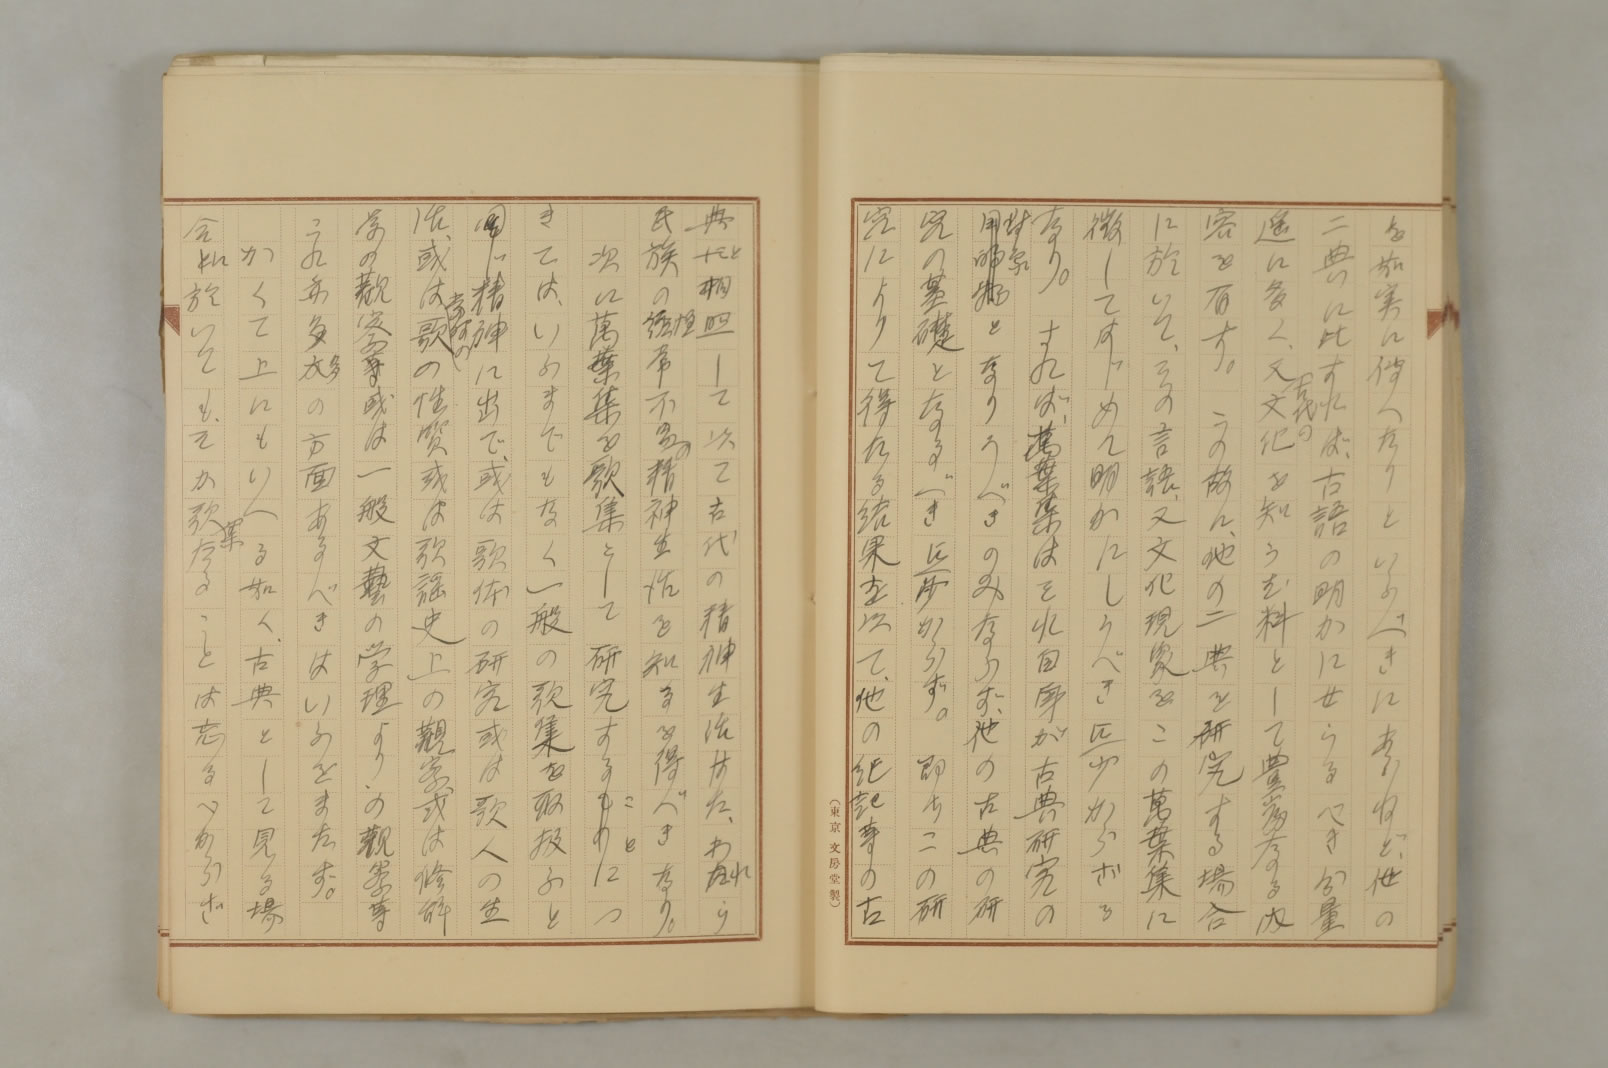 を如実に伝へたりといふべきにあらねど、他の
二典に比すれば、古語の明かにせらるべき分量
遥に多く、又古代の文化を知るべき料として豊富なる内
容を有す。この故に、他の二典を研究する場合
に於いて、その言語、又文化現象をこの萬葉集に
徴してはじめて明かにしうべき点少からざる
なり。されば、萬葉集はそれ自身が古典研究の
対象となりうべきのみならず、他の古典の研
究の基礎となるべき点少からず。即ちこの研
究によりて得たる結果を以て、他の紀記等の古
(東京 文房堂製)
典と相照して以て古代の精神生活、われら
民族の不易の精神生活を知るを得べきなり。
次に萬葉集を歌集として研究することにつ
きては、いふまでもなく一般の歌集を取扱ふと
同じ精神に出で、或は歌体の研究或は歌人の生
活、或は歌の性質或は歌謡史上の観察、或は修辞
学の観察等或は一般文藝の学理よりの観察等
その方面あるべきはいふをまたず。
かくて上にもいへる如く、古典として見る場
合に於いても、そが歌集たることは忘るべからざ